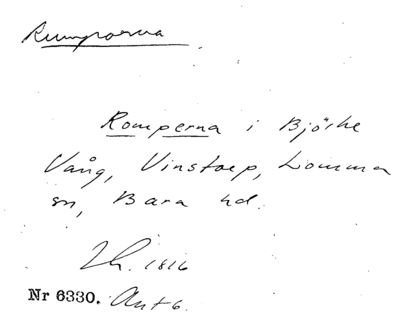 Rumporna
Romperna i Björke
Vång, Vinstorp, Lomma
sn, Bara hd.
Lh. 1816
Nr 6330. Akt 6.